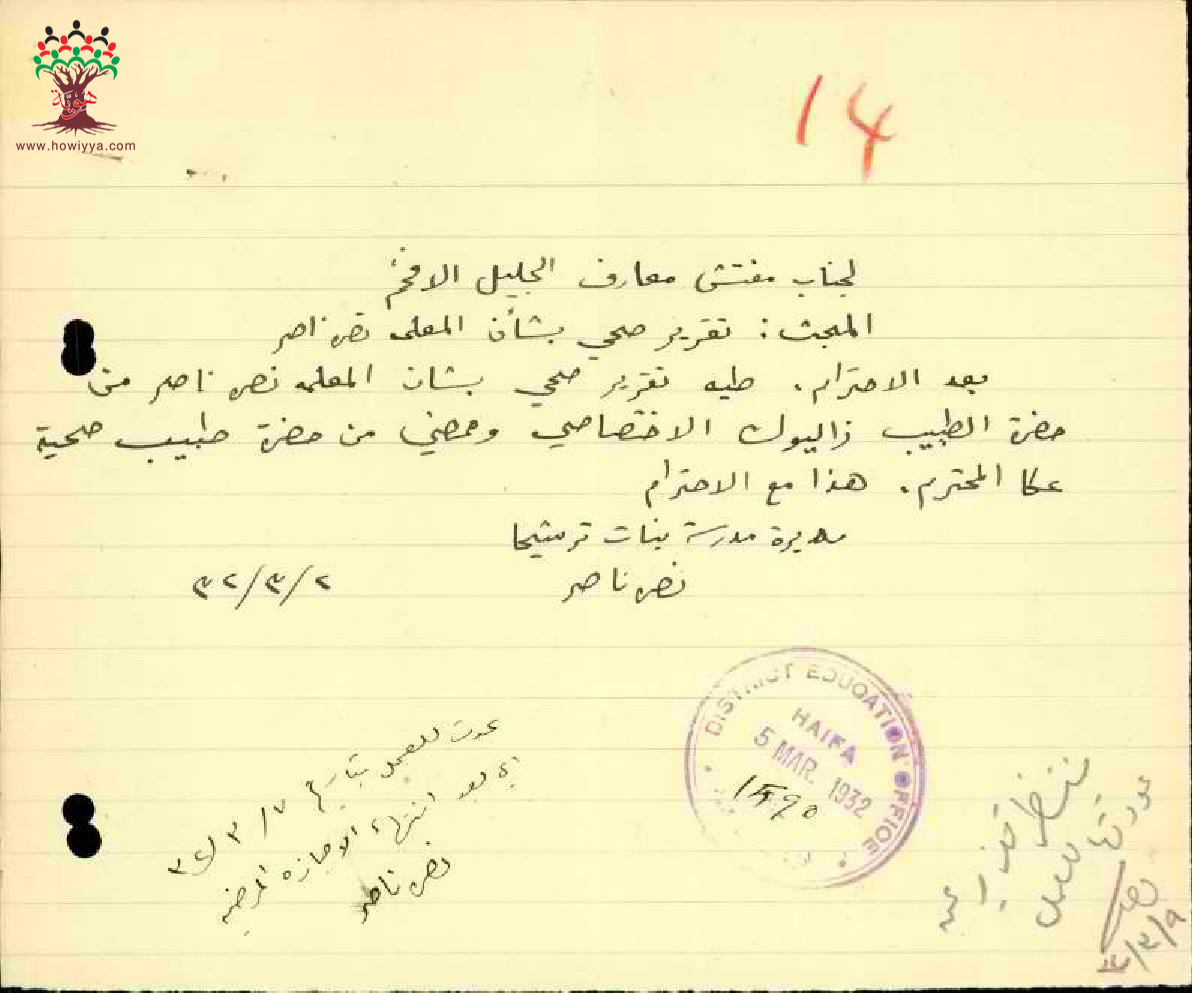 هوية
www.howiyya.com
14
لجناب مفتش معارف الجليل الافخم
المبحث: تقرير صحي بشأن المعلمه نصره ناصر
بعد الاحترام. طيه تقرير صحي بشان المعلمه نصره ناصر من
حضرة الطبيب زاليوك الاختصاصي وممضي من حضرة طبيب صحية
عكا المحترم. هذا مع الاحترام
مديرة مدرسة بنات ترشيحا
نصره ناصر
٣٢/٣/٢
DISTRICT EDUCATION OFFICE
HAIFA
5 MAR. 1932
عدت للعمل بتاريخ ٣٢/٣/٧
اي بعد انتهاء الاجازه المرضيه
نصره ناصر
ننتظر تقرير عن
عودتها للعمل
٣٢/٣/٩